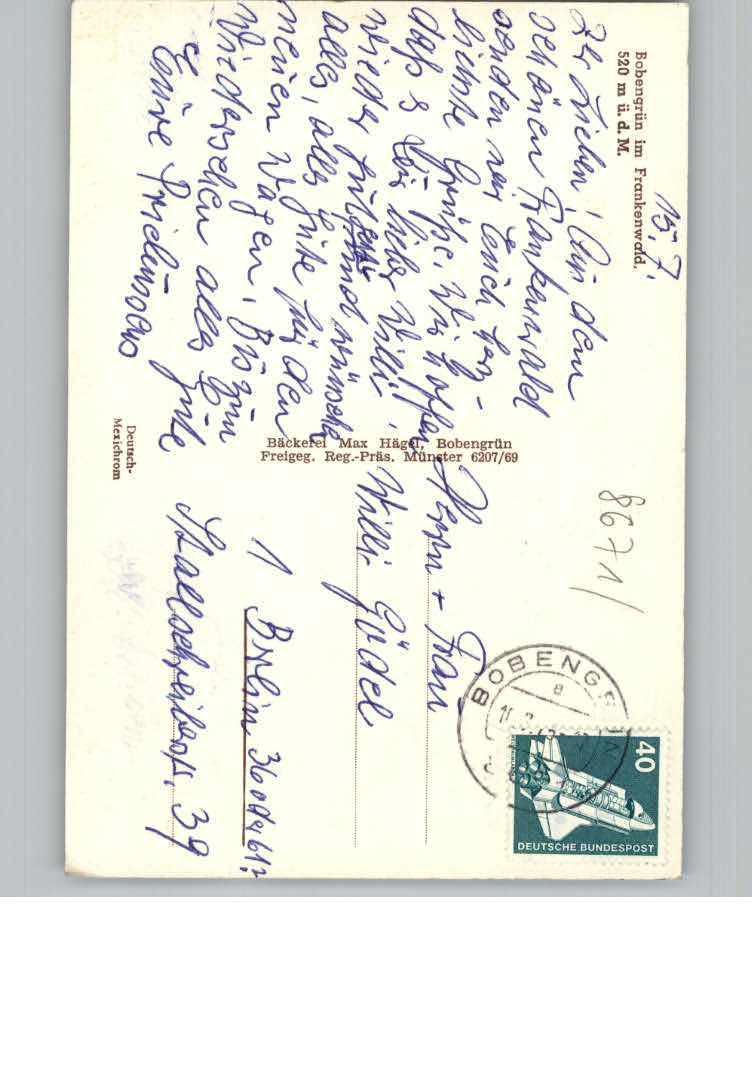 Bobengrün im Frankenwald.
520 m ü. d. M.
15.7.
Ihr Lieben! Aus dem
schönen Frankenwald
senden wir Euch herz-
lichste Grüße. Wir hoffen,
daß es Dir lieber Willi
wieder gut und wünschen
alles, alles Gute für den
neuen Wagen. Bis zum
Wiedersehen alles Gute
Eure
Deutsch-
Mexichrom
Bäckerei Max Hägel, Bobengrün
Freigeg. Reg.-Präs. Münster 6207/69
8671/
BOBENGRÜN
40
DEUTSCHE BUNDESPOST
Herrn + Frau
Willi Gödel
1 Berlin 36 oder 61?
Stallschreiberstr. 39